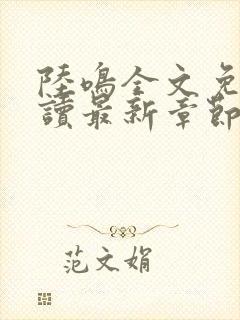 陸鳴全文免
讀最新章節
范文娟